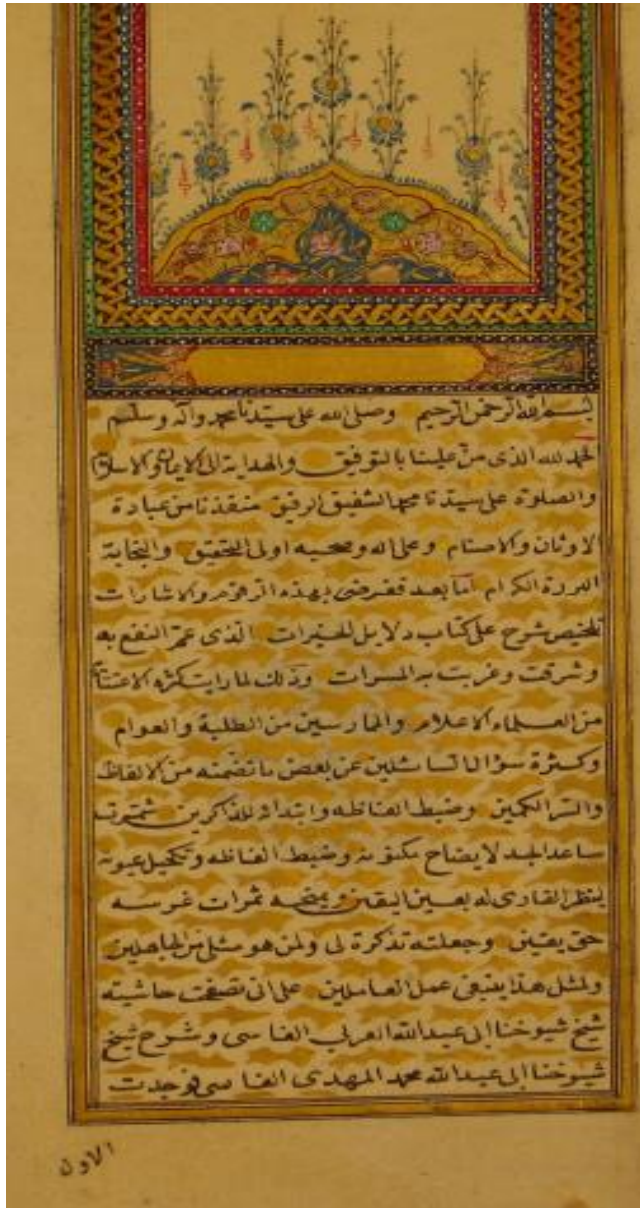 بسم الله الرحمن الرحيم وصلى الله على سيدنا محمد وآله وسلم
الحمد لله الذى منّ علينا بالتوفيق والهداية الى الايمان والاسلام
والصلوة على سيدنا محمد الشفيق الرفيق منقذنا من عبادة
الاوثان والاصنام وعلى اله وصحبه اولى التحقيق والنجابة
البررة الكرام اما بعد فغرضى بهذه الرقوم والاشارات
تلخيص شرح على كتاب دلايل الخيرات الذى عمّ النفع به
وشرقت وغربت به المسرات وذلك لما رايت كثرة الاعتناء
من العلماء الاعلام والممارسين من الطلبة والعوام
وكثرة سؤال السائلين عن بعض ما تضمنه من الالفاظ
والسر الكمين وضبط الفاظه وابتدائه للذاكرين شمرت
ساعد الجد لايضاح مكنونه وضبط الفاظه وتكحيل عيونه
لينظر القارى له بعين اليقين ويمنحه ثمرات غرسه
حتى يقين وجعلته تذكرة لى ولمن هو مثلى من الجاهلين
ولمثل هذا ينبغى عمل العاملين على انى تصفحت حاشيته
شيخ شيوخنا ابى عبد الله العربي الفاسى وشرح شيخ
شيوخنا ابى عبد الله محمد المهدى الفاسى فوجدت
الاول